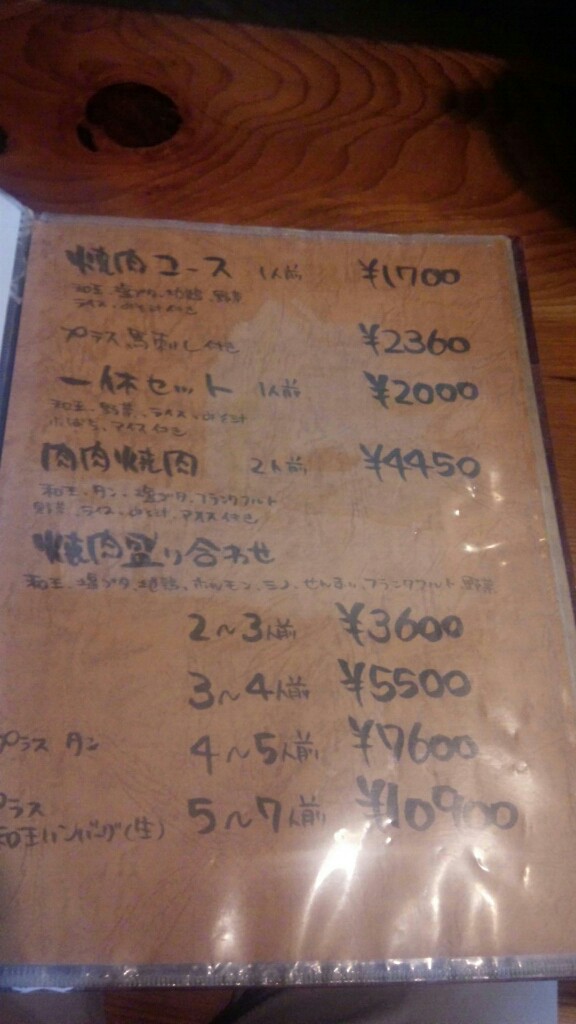 焼肉コース 1人前 ¥1700
和王、塩ブタ、地鶏、野菜
ライス、みそ汁付き
プラス馬刺し付き ¥2360
一休セット 1人前 ¥2000
和王、野菜、ライス、みそ汁
アイス付き
肉肉焼肉 2人前 ¥4450
和王、タン、塩ブタ、フランクフルト
野菜、ライス、みそ汁、アイス付き
焼肉盛り合わせ
和王、塩ブタ、地鶏、ホルモン、ミノ、せんまい、フランクフルト 野菜
2〜3人前 ¥3600
3〜4人前 ¥5500
プラス タン 4〜5人前 ¥7600
プラス
和王ハンバーグ(生) 5〜7人前 ¥10900